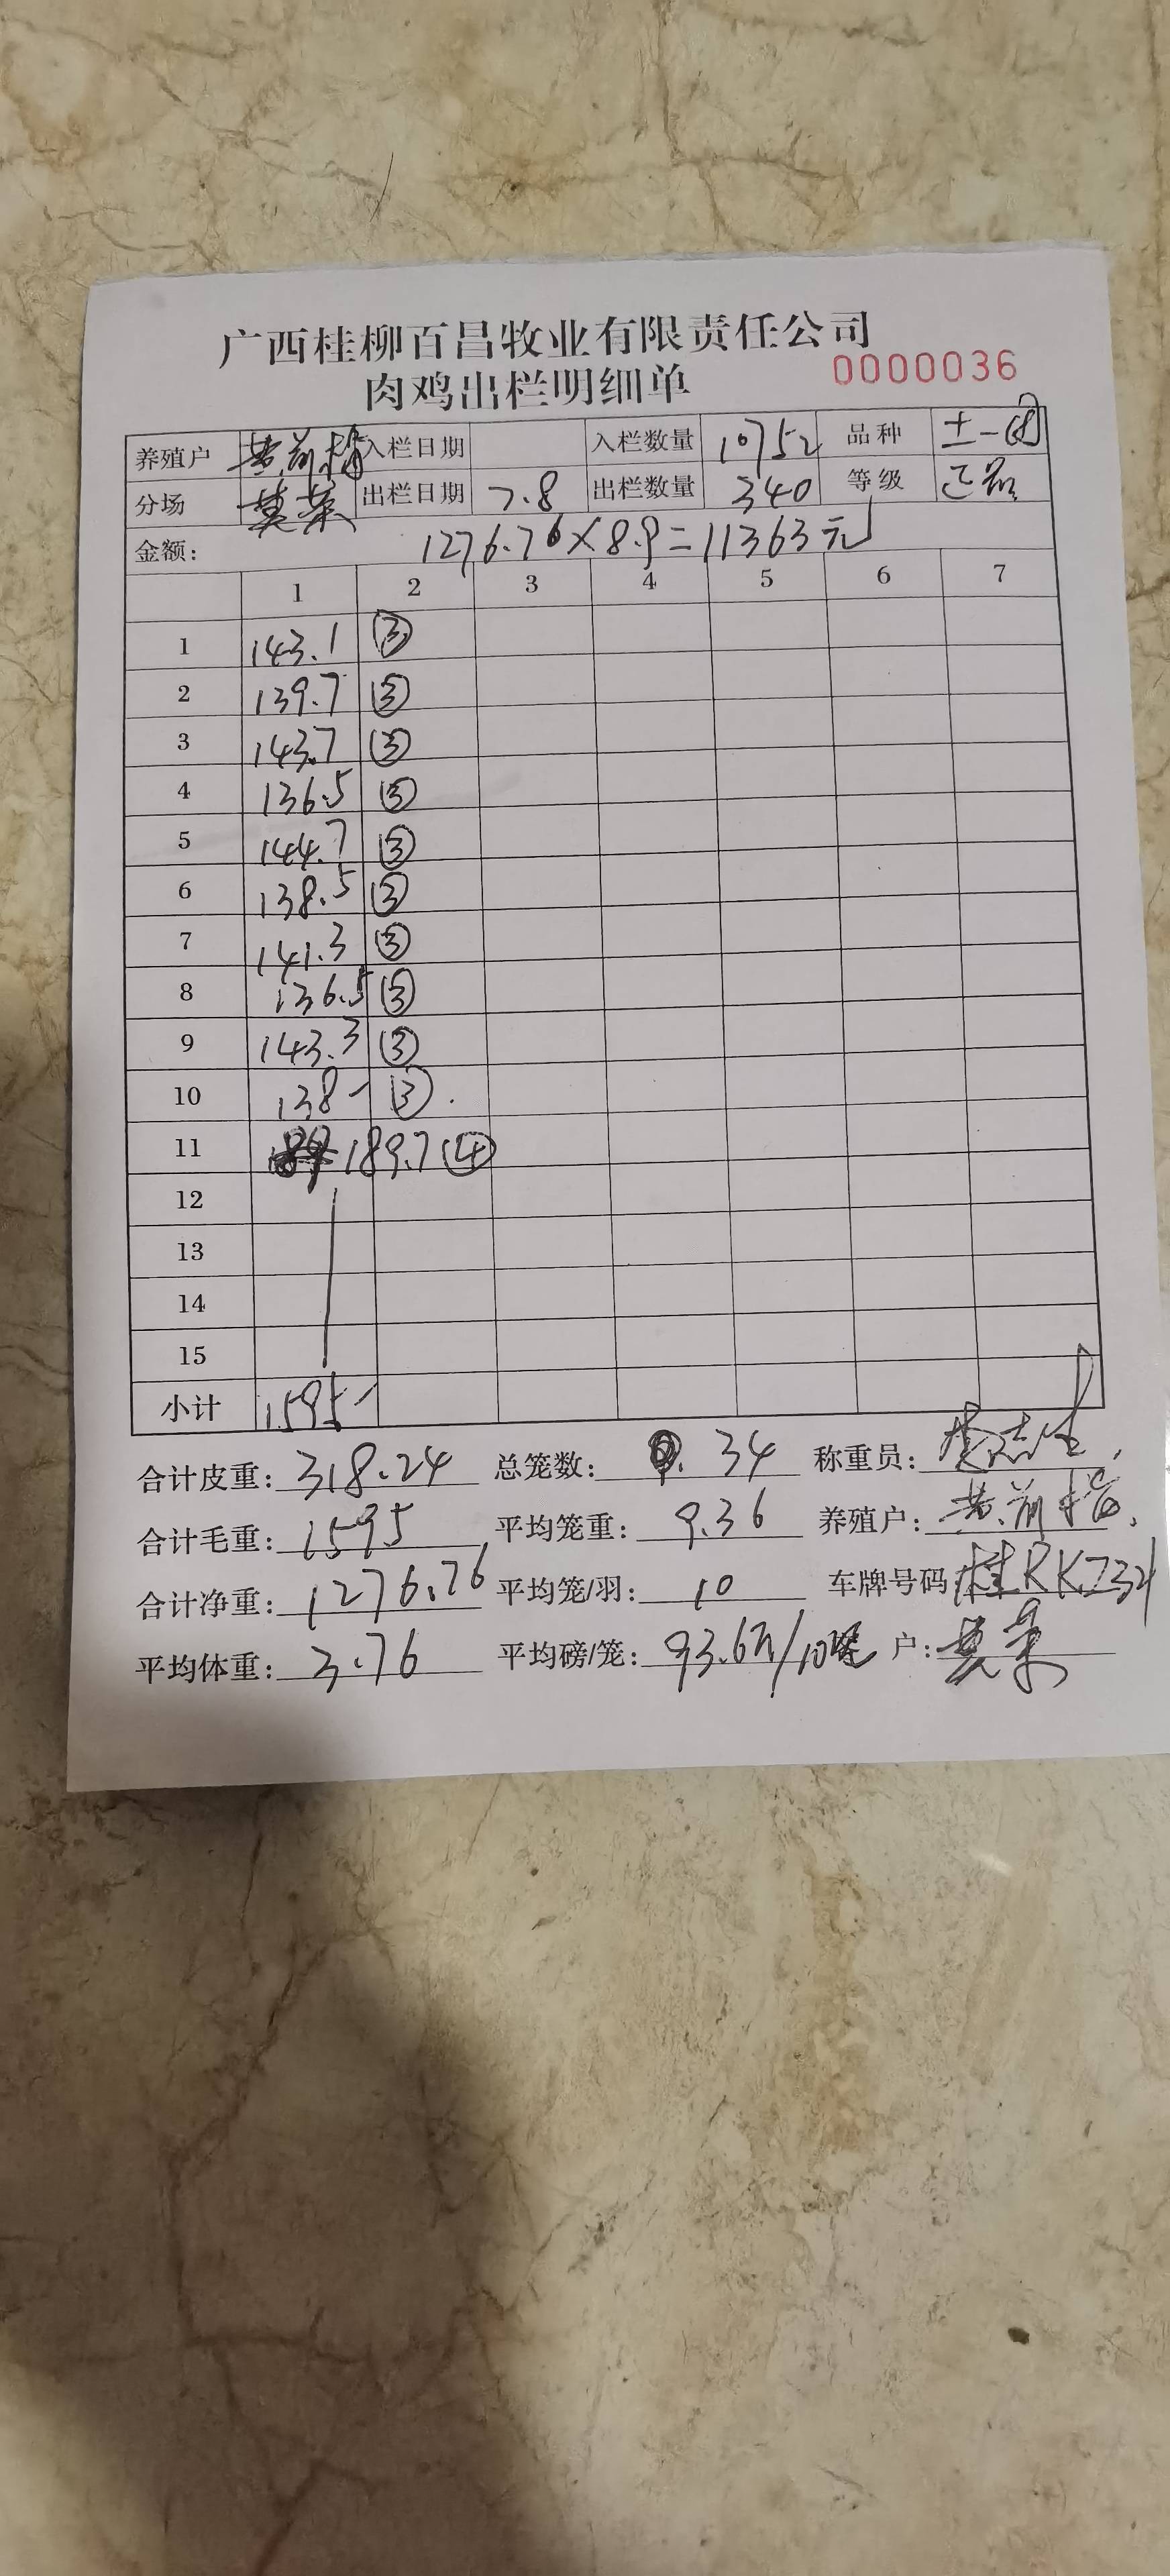 广西桂柳百昌牧业有限责任公司
肉鸡出栏明细单 0000036
养殖户 黄前指 入栏日期 入栏数量 10752 品种 土一
分场 莫荣 出栏日期 7.8 出栏数量 340 等级 正品
金额: 1276.76×8.9=11363元
1 2 3 4 5 6 7
1 143.1 ③
2 139.7 ③
3 143.7 ③
4 136.5 ③
5 144.7 ③
6 138.5 ③
7 141.3 ③
8 136.5 ③
9 143.3 ③
10 138- ③.
11 189.7 ④
12
13
14
15
小计 1595-
合计皮重: 318.24 总笼数: 34 称重员:
合计毛重: 1595 平均笼重: 9.36 养殖户: 黄前指
合计净重: 1276.76 平均笼/羽: 10 车牌号码 桂RK7321
平均体重: 3.76 平均磅/笼: 93.6 户: 莫荣